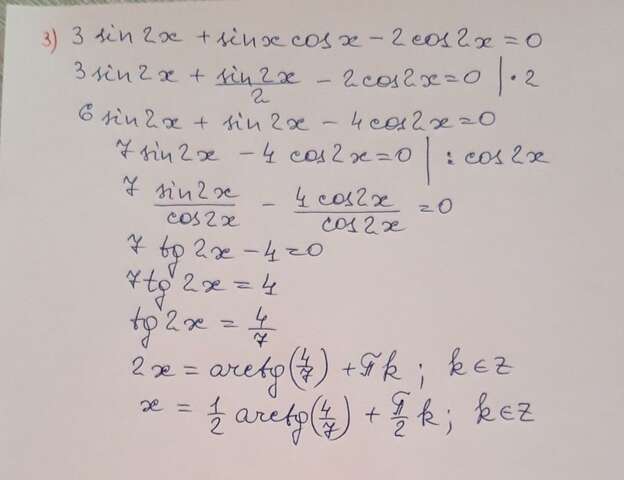 3) 3 sin 2x + sinx cos x - 2 cos 2x = 0
3 sin 2x + sin 2x / 2 - 2 cos 2x = 0 | · 2
6 sin 2x + sin 2x - 4 cos 2x = 0
7 sin 2x - 4 cos 2x = 0 | : cos 2x
7 sin 2x / cos 2x - 4 cos 2x / cos 2x = 0
7 tg 2x - 4 = 0
7 tg 2x = 4
tg 2x = 4/7
2x = arctg(4/7) + πk ; k ∈ Z
x = 1/2 arctg(4/7) + π/2 k ; k ∈ Z